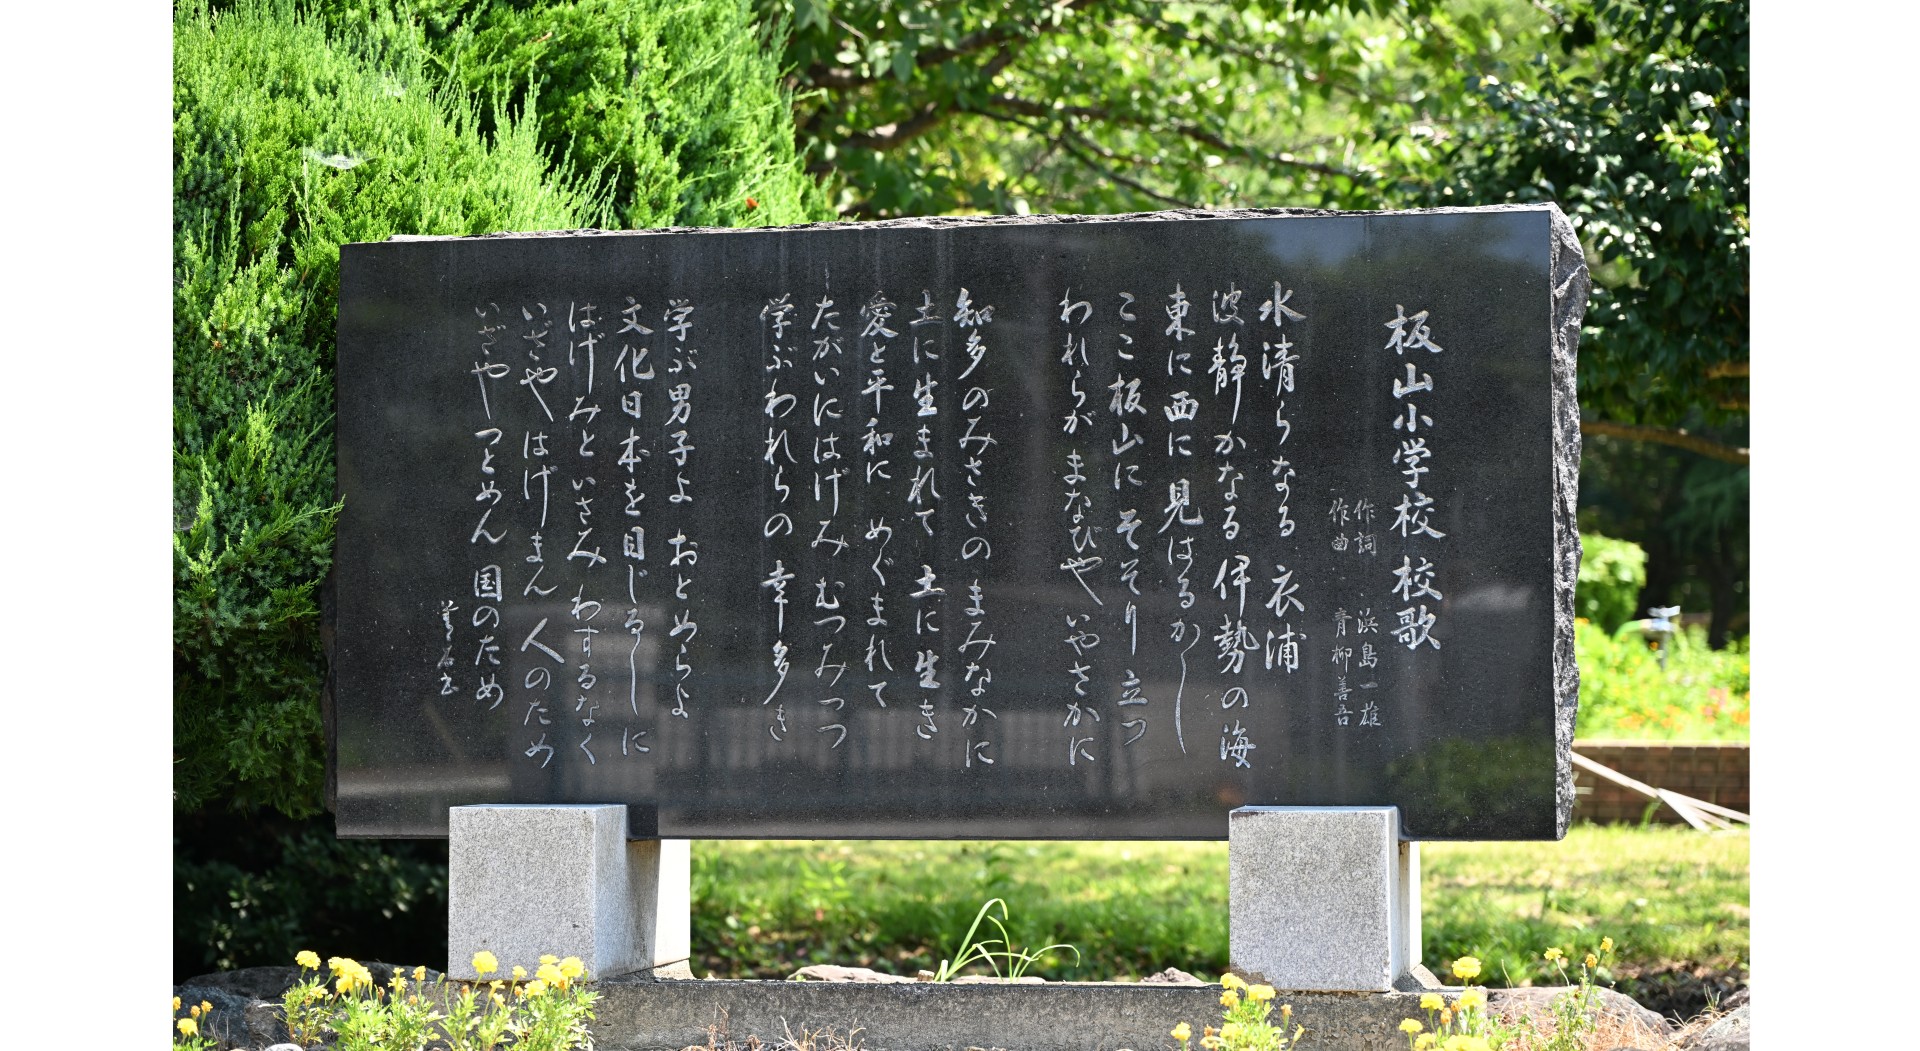 板山小学校 校歌
作詞 浜島一雄
作曲 青柳善吾
水清らなる 衣浦
波静かなる 伊勢の海
東に西に 見はるかし
ここ板山に そそり立つ
われらが まなびや いやさかに
知多のみさきの まみなかに
土に生まれて 土に生き
愛と平和に めぐまれて
たがいにはげみ むつみつつ
学ぶわれらの 幸多き
学ぶ男子よ おとめらよ
文化日本を 目じるしに
はげみと いさみ わするなく
いざや はげまん 人のため
いざや つとめん 国のため